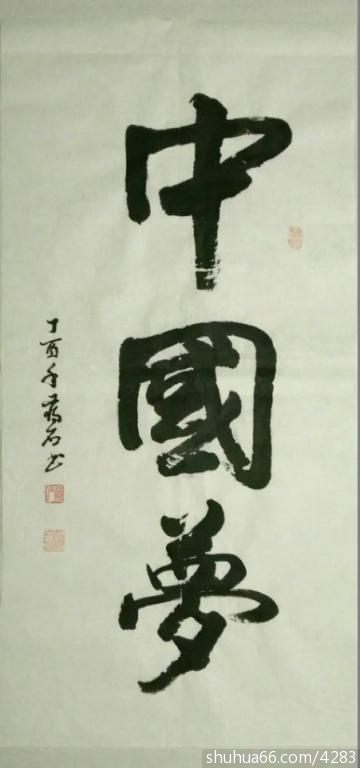 中國夢
丁酉年藥石书
shuhua66.com/4283